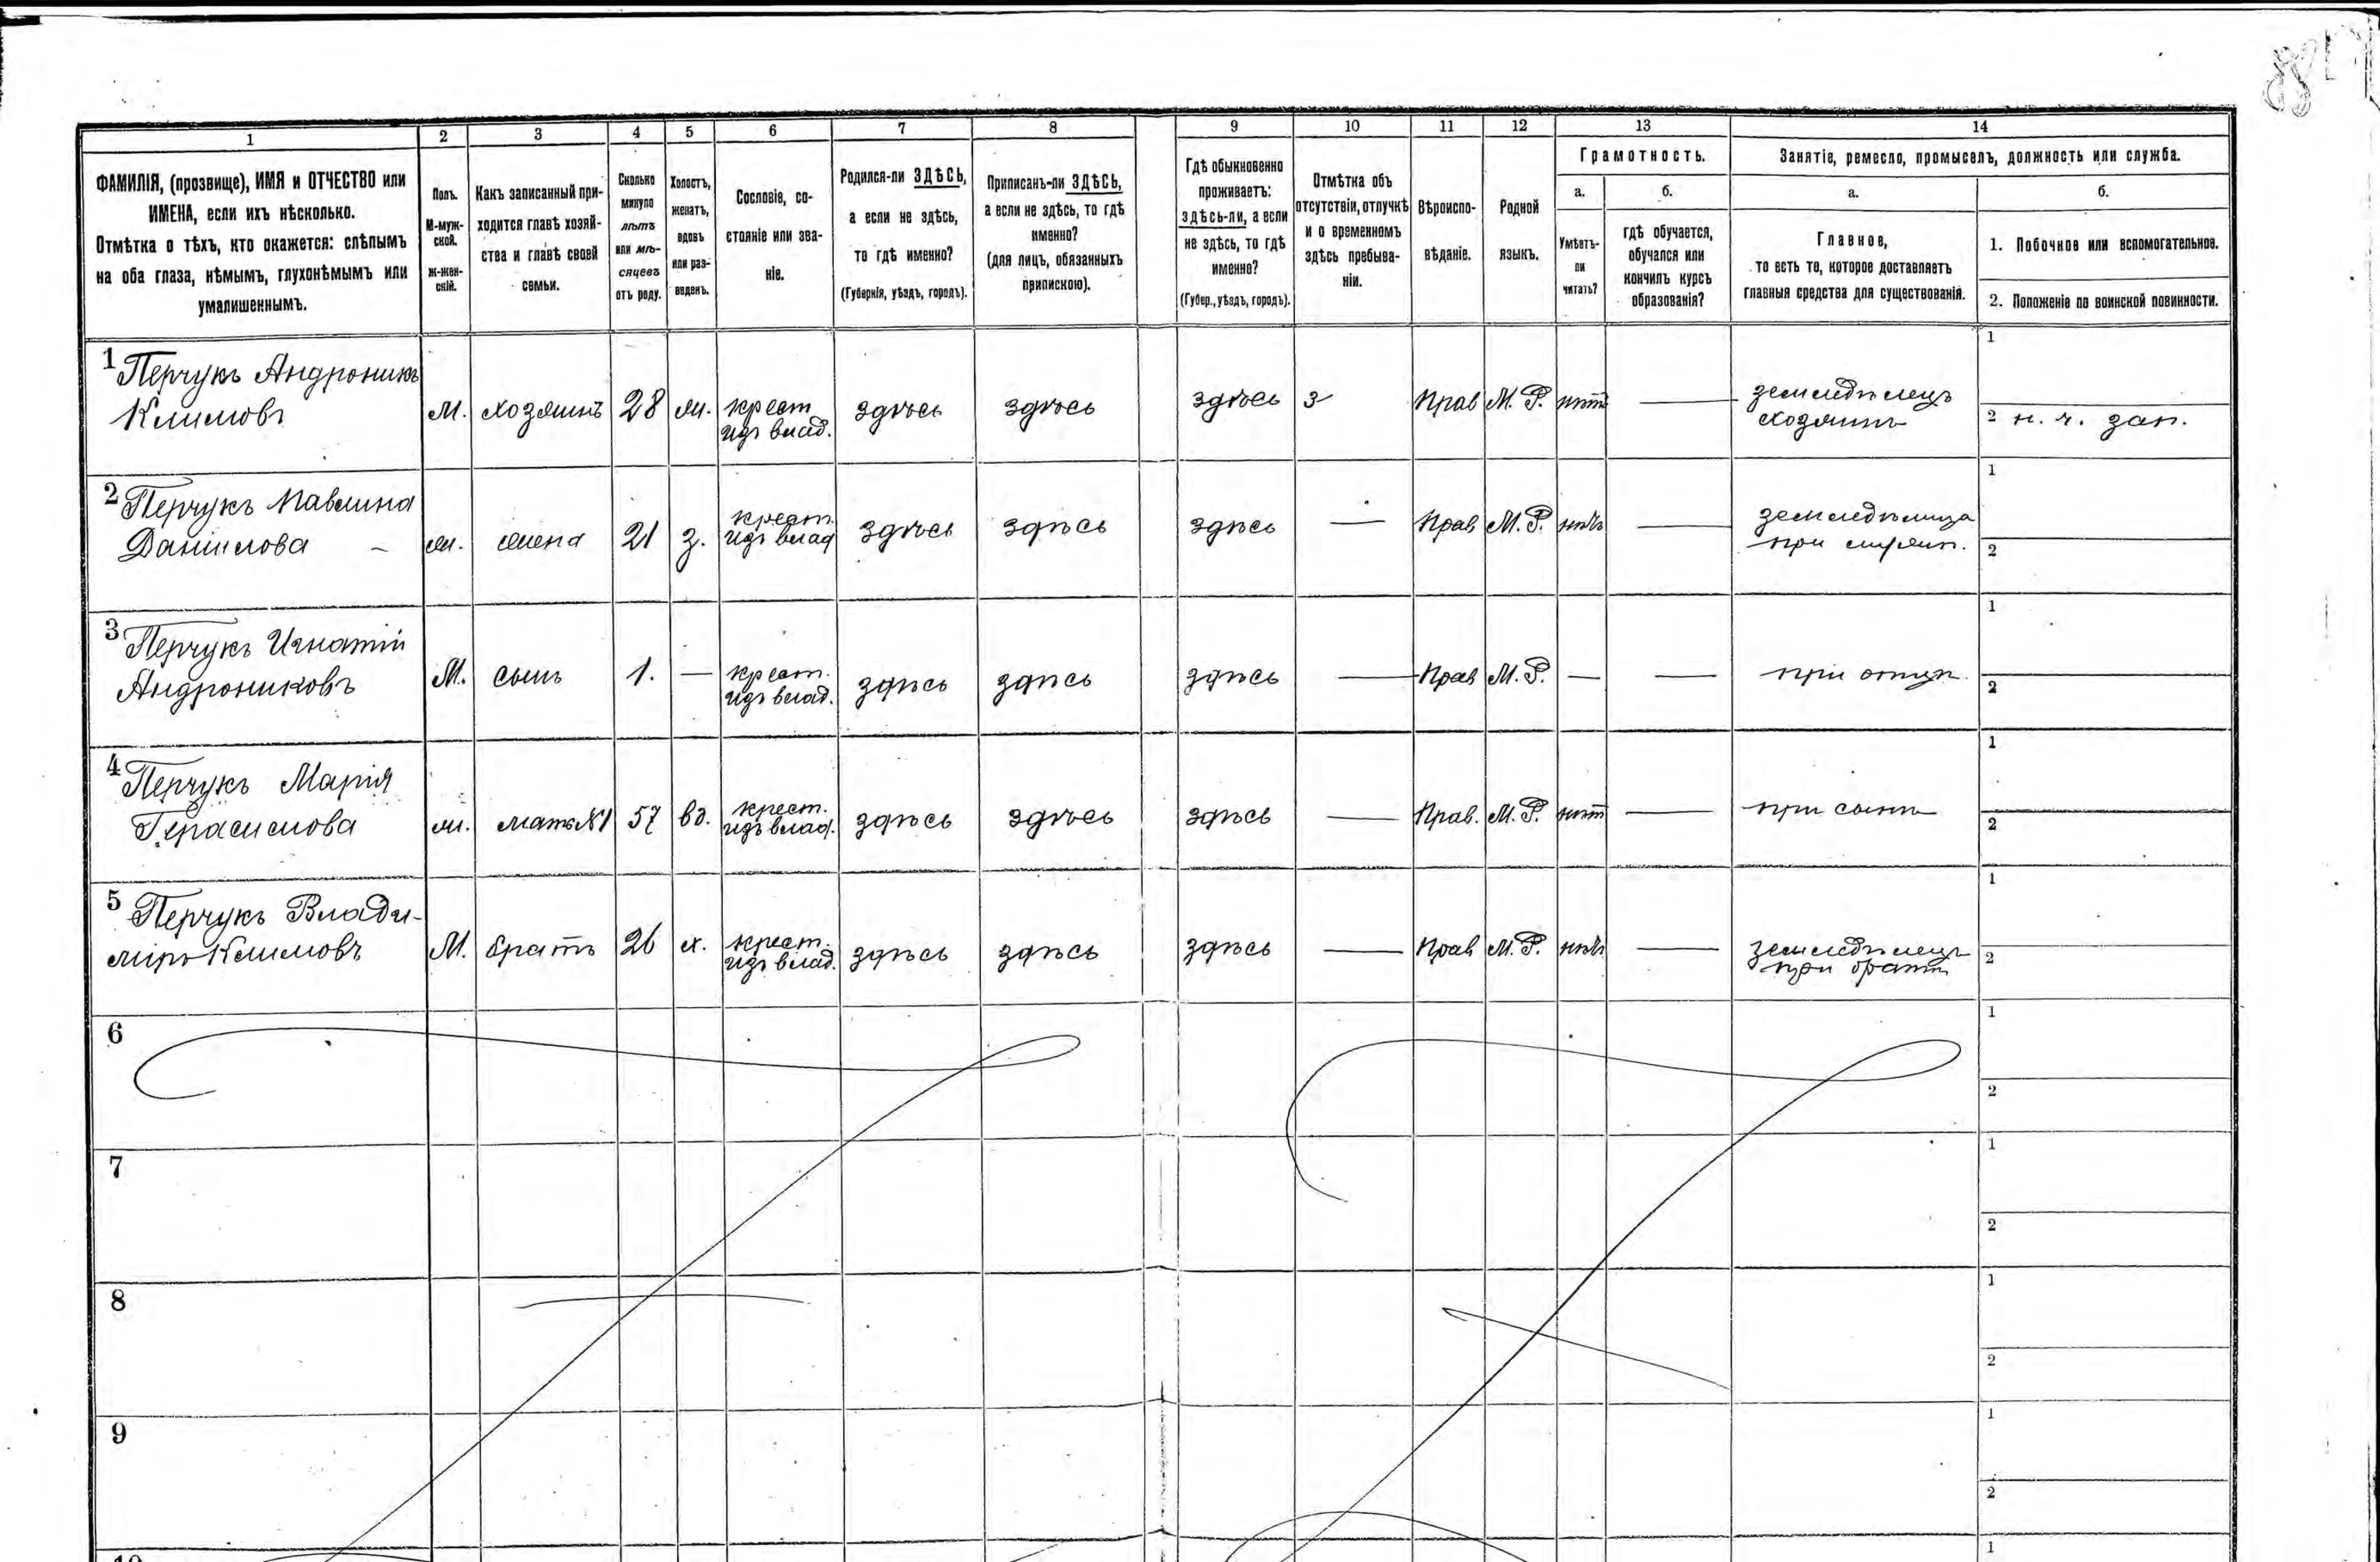 1 2 3 4 5 6 7 8 9 10 11 12 13 14
ФАМИЛІЯ, (прозвище), ИМЯ и ОТЧЕСТВО или
ИМЕНА, если ихъ нѣсколько.
Отмѣтка о тѣхъ, кто окажется: слѣпымъ
на оба глаза, нѣмымъ, глухонѣмымъ или
умалишеннымъ.
Полъ.
М-муж-
ской.
ж-жен-
скій.
Какъ записанный при-
ходится главѣ хозяй-
ства и главѣ своей
семьи.
Сколько
минуло
лѣтъ
или мѣ-
сяцевъ
отъ роду.
Холостъ,
женатъ,
вдовъ
или раз-
веденъ.
Сословіе, со-
стояніе или зва-
ніе.
Родился-ли ЗДѢСЬ,
а если не здѣсь,
то гдѣ именно?
(Губернія, уѣздъ, городъ).
Приписанъ-ли ЗДѢСЬ,
а если не здѣсь, то гдѣ
именно?
(для лицъ, обязанныхъ
припискою).
Гдѣ обыкновенно
проживаетъ:
здѣсь-ли, а если
не здѣсь, то гдѣ
именно?
(Губер., уѣздъ, городъ).
Отмѣтка объ
отсутствіи, отлучкѣ
и о временномъ
здѣсь пребыва-
ніи.
Вѣроиспо-
вѣданіе.
Родной
языкъ.
Грамотность.
а.
Умѣетъ-
ли
читать?
б.
гдѣ обучается,
обучался или
кончилъ курсъ
образованія?
Занятіе, ремесло, промыселъ, должность или служба.
а.
Главное,
то есть то, которое доставляетъ
главныя средства для существованія.
б.
1. Побочное или вспомогательное.
2. Положеніе по воинской повинности.
1 Перчукъ Андроникъ
Климовъ
М. хозяинъ 28 ж. крест
изъ влад. здѣсь здѣсь здѣсь З Прав М. Р. нѣтъ — земледѣлецъ
хозяинъ
1
2 н. ч. зап.
2 Перчукъ Павлина
Данилова
ж. жена 21 з. крест.
изъ влад здѣсь здѣсь здѣсь — Прав М. Р. нѣтъ — земледѣлица
при
1
2
3 Перчукъ Игнатій
Андрониковъ
М. сынъ 1. — крест.
изъ влад. здѣсь здѣсь здѣсь — Прав М. Р. — — при отцѣ
1
2
4 Перчукъ Марія
Герасимова
ж. мать №1 57 вд. крест.
изъ влад. здѣсь здѣсь здѣсь — Прав. М. Р. нѣтъ — при сынѣ
1
2
5 Перчукъ Влади-
міръ Климовъ
М. братъ 26 х. крест.
изъ влад. здѣсь здѣсь здѣсь — Прав М. Р. нѣтъ — земледѣлецъ
при братѣ
1
2
6
1
2
7
1
2
8
1
2
9
1
2
1